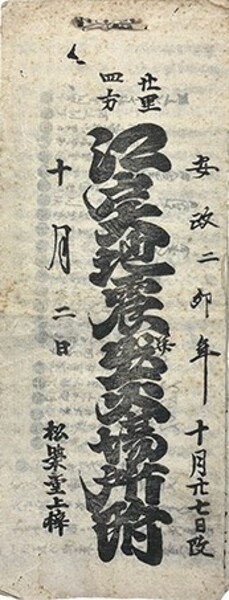 安政二卯年 十月廿七日改
廿里
四方
江戸地震出火場所附
十月二日
松栄堂上梓